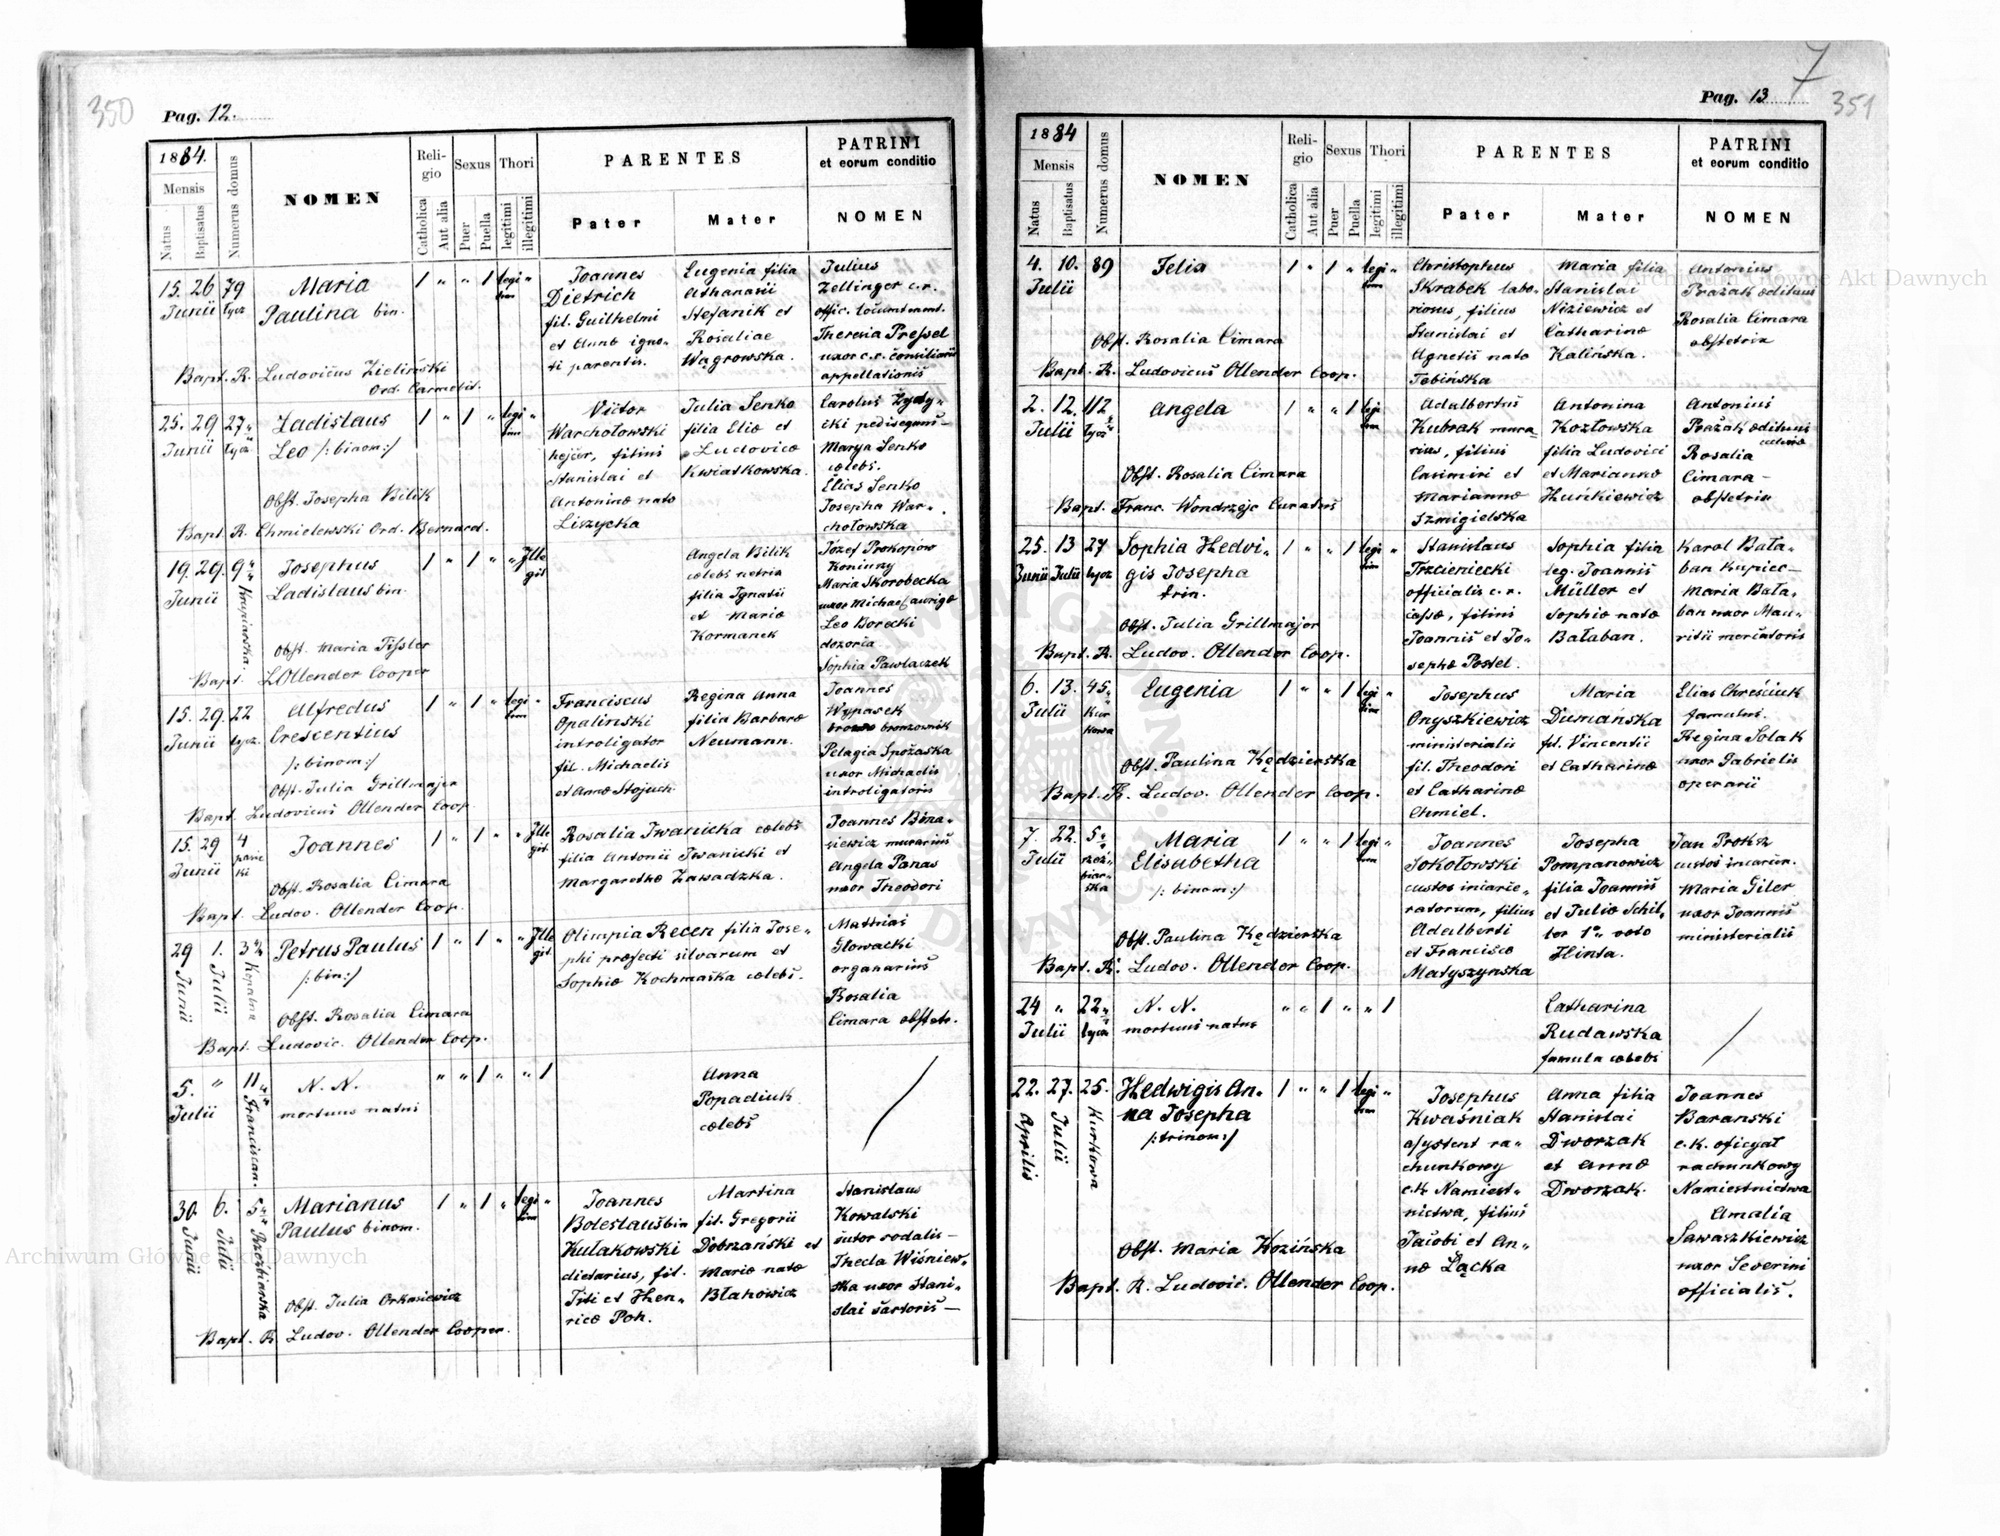 350
Pag. 12.
1884.
Mensis
Natus
Baptisatus
Numerus domus
NOMEN
Religio
Catholica
Aut alia
Sexus
Puer
Puella
Thori
legitimi
illegitimi
PARENTES
Pater
Mater
PATRINI
et eorum conditio
NOMEN
15. 26 79
Junii Lycz
Maria
Paulina bin.
Bapt. R. Ludovicus Zieliński
Ord. Carmelit.
1 " " 1 legi "
tim
Joannes
Dietrich
fil. Guilhelmi
et Annæ igno-
ti parentis.
Eugenia filia
Athanasii
Stefanik et
Rosaliae
Wągrowska.
Julius
Zellinger c.r.
offic. locumtenent.
Theresia Pressel
uxor c.r. consiliarii
appellationis
25. 29 27
Junii Lycz.
Ladislaus
Leo /:binom:/
Obst. Josepha Bilik
Bapt. R. Chmielewski Ord. Bernard.
1 " 1 " legi "
tim
Victor
Warchołowski
filius
Stanislai et
Antoninæ nata
Liszycka
Julia Senko
filia Eliæ et
Ludovicæ
Kwiatkowska.
Carolus
pedisequus
Marya Senko
cælebs.
Elias Senko
Josepha War-
chołowska
19. 29. 9
Junii
Krupiarska.
Josephus
Ladislaus bin.
Obst. Maria Tissler
Bapt. L Ollender Cooper
1 " 1 " " Ille
git.
Angela Bilik
cælebs netrix
filia Ignatii
et Mariæ
Kormanek
Józef Prokopów
Koniuszy
Maria Skorobecka
uxor Michael aurigæ
Leo Borecki
dozoria
Sophia Pawłaczek
15. 29. 22
Junii Lycz.
Alfredus
Crescentius
/:binom:/
Obst. Julia Grillmajer
Bapt. Ludovicus Ollender Coop.
1 " 1 " legi "
tim
Franciscus
Opalinski
introligator
fil. Michaelis
et Annæ Stojuch.
Regina Anna
filia Barbaræ
Neumann.
Joannes
Wypasek
bronzownik
Pelagia Spożarska
uxor Michaelis
introligatoris
15. 29 4
Junii
Joannes
Obst. Rosalia Cimara
Bapt. Ludov. Ollender Coop.
1 " 1 " " Ille
git.
Rosalia Iwanicka cælebs
filia Antonii Iwanicki et
Margarethæ Zawadzka.
Joannes Bina-
siewicz murarius
Angela Panas
uxor Theodori
29 1. 3 2/4
Junii
Julii
Kopalna
Petrus Paulus
/:bin:/
Obst. Rosalia Cimara
Bapt. Ludovic. Ollender Coop.
1 " 1 " " Ille
git.
Olimpia Recen filia Jose-
phi præfecti silvarum et
Sophiæ Kochmaska cælebs.
Mathias
Głowacki
organarius
Rosalia
Cimara obstetr.
5. " 11
Julii
Franciscan.
N. N.
mortuus natus
" " 1 " " 1
Anna
Popadiuk
cælebs
30. 6. 5
Junii
Julii
Rzeźbiarska
Marianus
Paulus binom.
Obst. Julia Orkasiewicz
Bapt. R Ludov. Ollender Cooper.
1 " 1 " legi "
tim
Joannes
Boleslaus bin
Kułakowski
dietarius, fil.
Titi et Hen-
ricæ Poh.
Martina
fil. Gregorii
Dobrzański et
Mariæ nata
Błahowicz
Stanislaus
Kowalski
sutor sodalis-
Thecla Wiśniew-
ska uxor Stani-
slai sartoris-
7
Pag. 13
351
1884
Mensis
Natus
Baptisatus
Numerus domus
NOMEN
Religio
Catholica
Aut alia
Sexus
Puer
Puella
Thori
legitimi
illegitimi
PARENTES
Pater
Mater
PATRINI
et eorum conditio
NOMEN
4. 10. 89
Julii
Felia
Obst. Rosalia Cimara
Bapt. R. Ludovicus Ollender Coop.
1 " 1 " legi "
tim
Christophus
Skrabek labo-
riosus, filius
Stanislai et
Agnetis nata
Tebińska
Maria filia
Stanislai
Niziewicz et
Catharinæ
Kalińska.
Antonius
Prażak ædituus
Rosalia Cimara
obstetrix
2. 12. 112
Julii Lycz
Angela
Obst. Rosalia Cimara
Bapt. Franc. Wondrzejc Curatus
1 " " 1 legi "
tim
Adalbertus
Kubrak mura-
rius, filius
Casimiri et
Mariannæ
Szmigielska
Antonina
Kozłowska
filia Ludovici
et Mariannæ
Huńkiewicz
Antonius
Prażak ædituus
Rosalia
Cimara-
obstetrix
25. 13 27
Junii Julii Lycz
Sophia Hedvi-
gis Josepha
trin.
Obst. Julia Grillmajer
Bapt. R. Ludov. Ollender Coop.
1 " " 1 legi "
tim
Stanislaus
Trzcieniecki
officialis c.r.
cassæ, filius
Joannis et Jo-
sephæ Postel.
Sophia filia
leg. Joannis
Müller et
Sophiæ nata
Bałaban.
Karol Bała-
ban Kupiec-
Maria Bała-
ban uxor Mau-
ritii mercatoris
6. 13. 45
Julii
Kur
kowa
Eugenia
Obst. Paulina Kędzierska
Bapt. R. Ludov. Ollender Coop.
1 " " 1 legi "
tim
Josephus
Onyszkiewicz
ministerialis
fil. Theodori
et Catharinæ
Chmiel.
Maria
Dumańska
fil. Vincentii
et Catharinæ
Elias Chreściuk
famulus.
Regina Solak
uxor Gabrielis
operarii
7. 22. 5
Julii
rzeź-
biar-
ska
Maria
Elisabetha
/: binom:/
Obst. Paulina Kędzierska
Bapt. R. Ludov. Ollender Coop.
1 " " 1 legi "
tim
Joannes
Sokołowski
custos incarce-
ratorum, filius
Adalberti
et Franciscæ
Matyszyńska
Josepha
Pompanowicz
filia Joannis
et Juliæ Schil-
ler 1º voto
Hinta.
Jan Proksz
custos incarcer.
Maria Giler
uxor Joannis
ministerialis
24 " 22
Julii Lycz
N. N.
mortuus natus
" " 1 " " 1
Catharina
Rudawska
famula cælebs
22. 27. 25.
Aprilis
Julii
Kurkowa
Hedwigis An-
na Josepha
/:trinom:/
Obst. Maria Kozińska
Bapt. R. Ludovic. Ollender Coop.
1 " " 1 legi "
tim
Josephus
Kwaśniak
asystent ra-
chunkowy
c.k. Namiest-
nictwa, filius
Jacobi et An-
næ Łącka
Anna filia
Stanislai
Dworzak
et Annæ
Dworzak.
Joannes
Baranski
c.k. oficyał
rachunkowy
Namiestnictwa
Amalia
Sawaszkiewicz
uxor Severini
officialis.
Archiwum Główne Akt Dawnych
Archiwum Główne Akt Dawnych